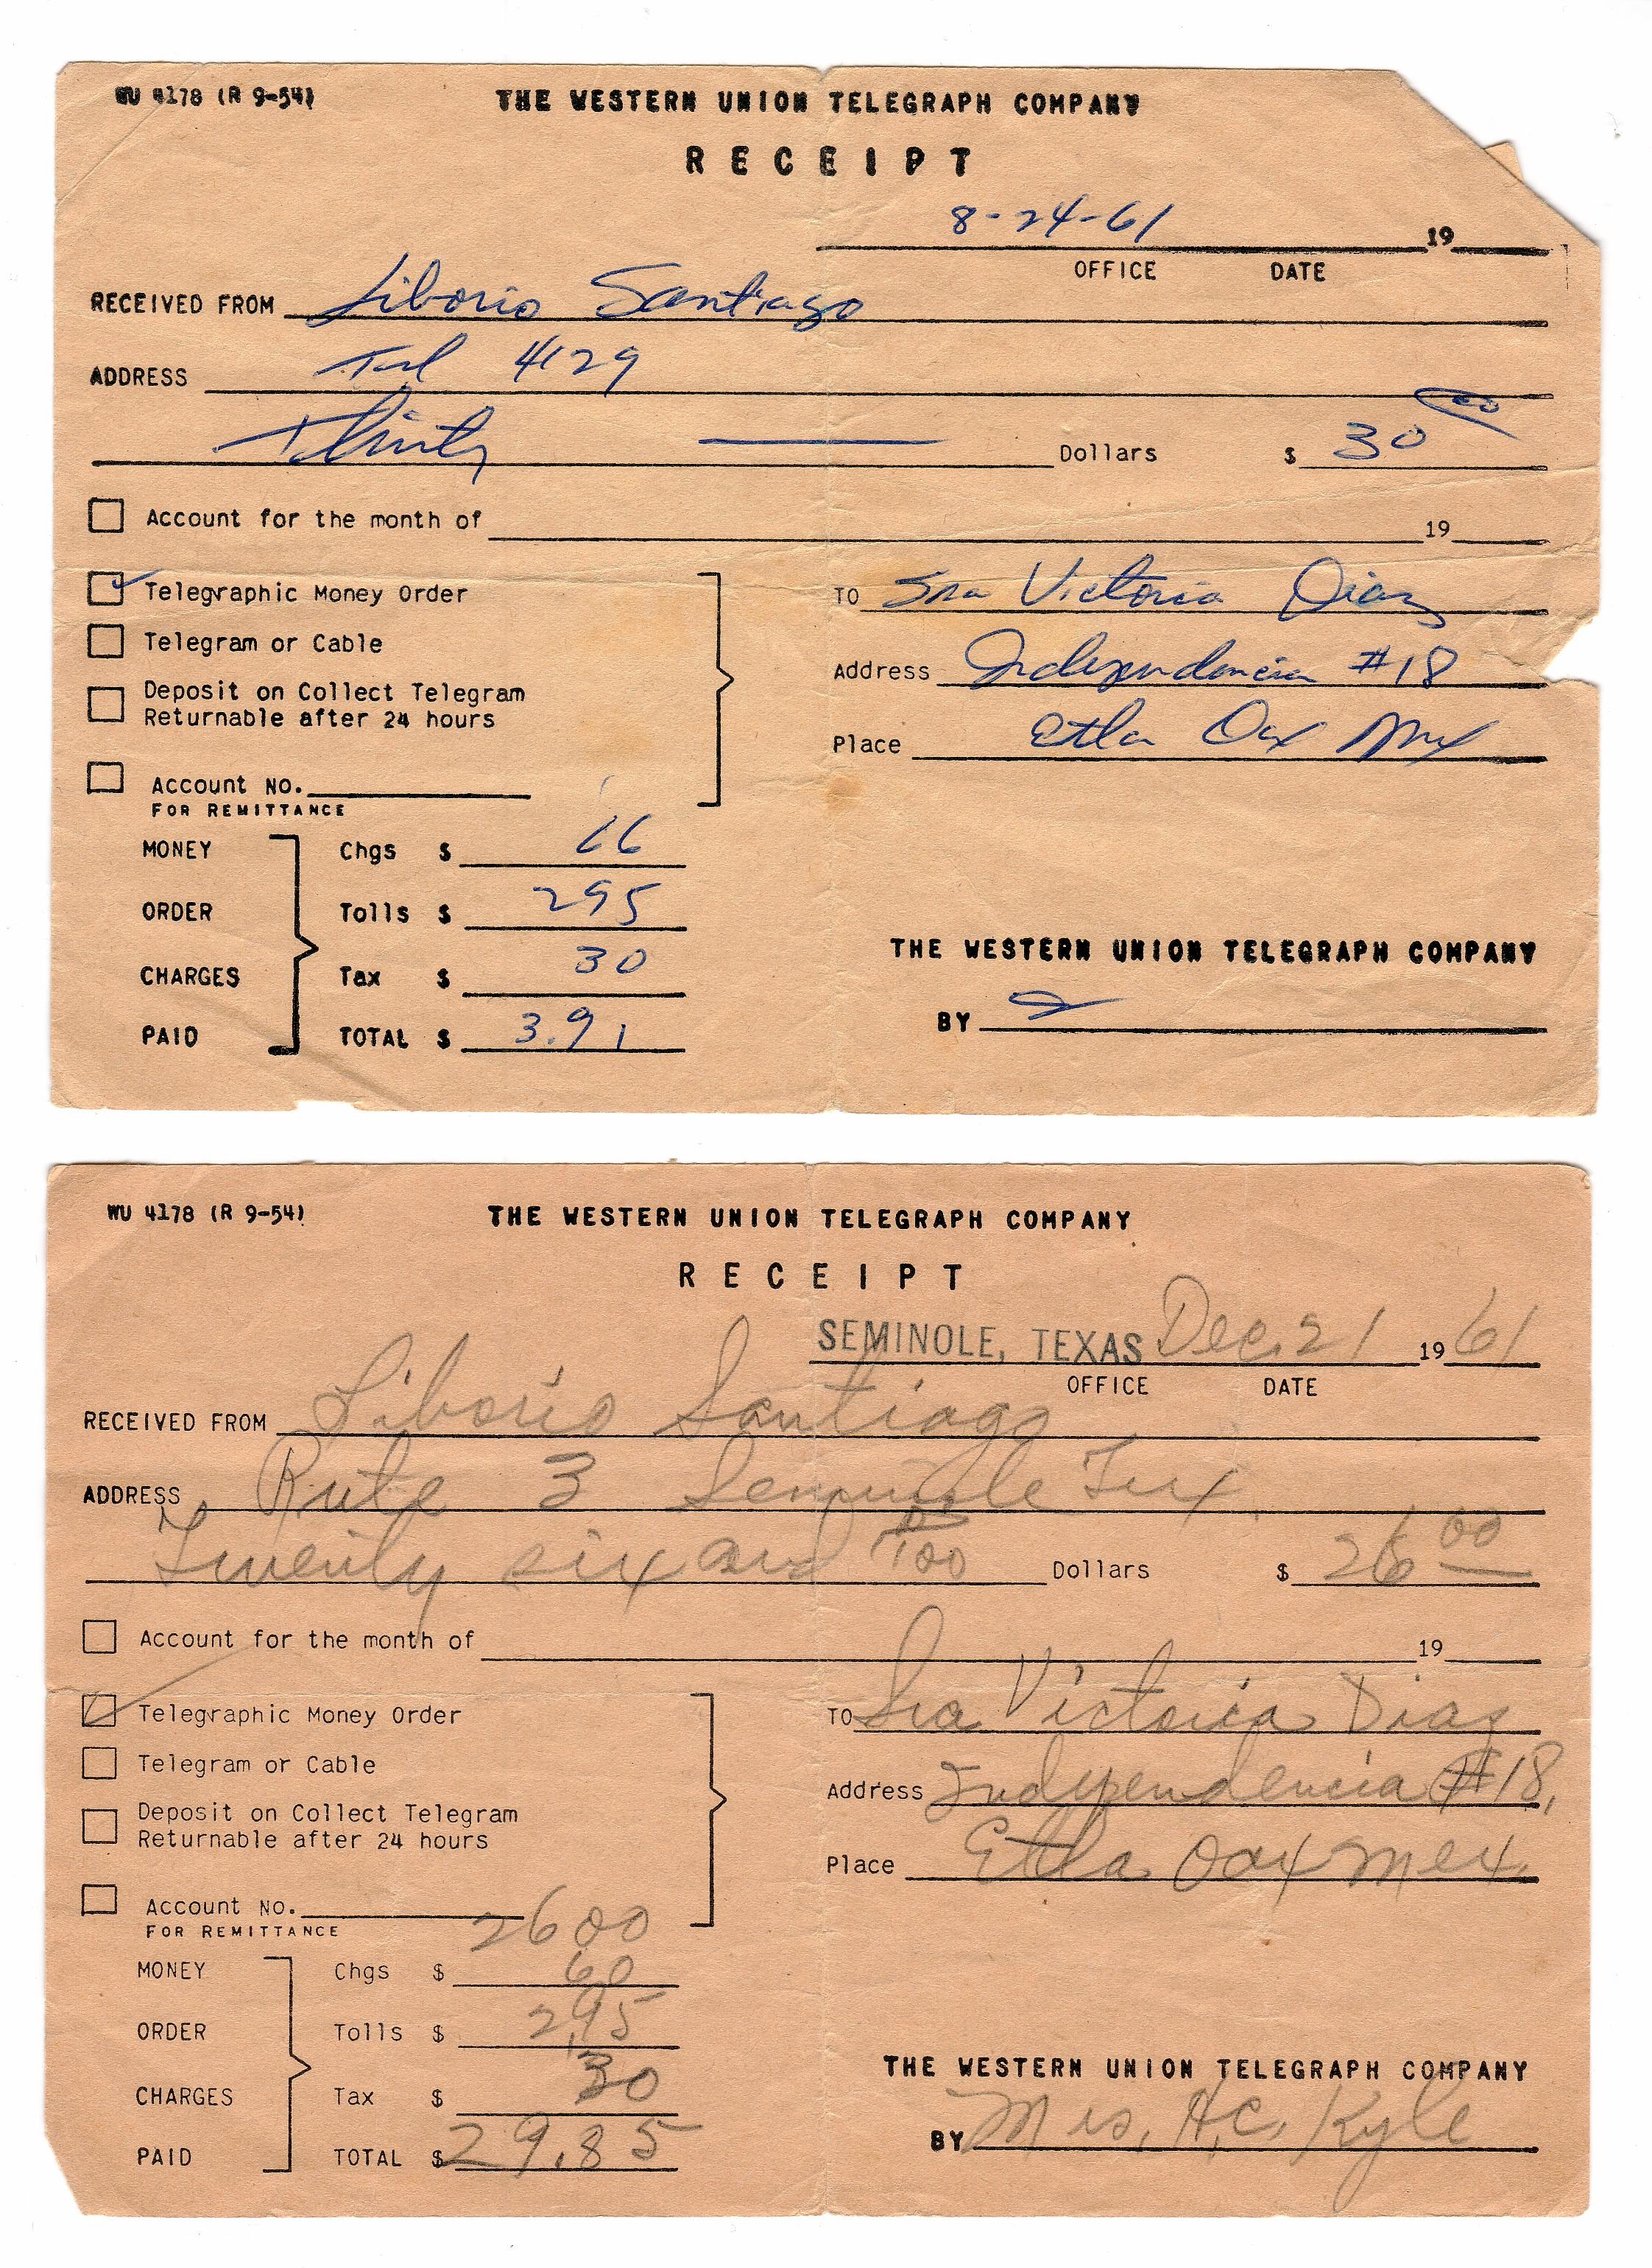 WU 4178 (R 9-54)
THE WESTERN UNION TELEGRAPH COMPANY
RECEIPT
8-24-61 19
OFFICE DATE
RECEIVED FROM Liborio Santiago
ADDRESS Tel 4129
Thirty Dollars $ 30 00
Account for the month of 19
Telegraphic Money Order
Telegram or Cable
Deposit on Collect Telegram
Returnable after 24 hours
Account No.
FOR REMITTANCE
TO Sra Victoria Diaz
Address Independencia #18
Place Etla Oax Mex
MONEY Chgs $ 66
ORDER Tolls $ 295
CHARGES Tax $ 30
PAID TOTAL $ 3.91
THE WESTERN UNION TELEGRAPH COMPANY
BY
WU 4178 (R 9-54)
THE WESTERN UNION TELEGRAPH COMPANY
RECEIPT
SEMINOLE, TEXAS Dec. 21 19 61
OFFICE DATE
RECEIVED FROM Liborio Santiago
ADDRESS Rute 3 Seminole Tex
Twenty six and 00/100 Dollars $ 26 00
Account for the month of 19
Telegraphic Money Order
Telegram or Cable
Deposit on Collect Telegram
Returnable after 24 hours
Account No.
FOR REMITTANCE
TO Sra Victoria Diaz
Address Independencia #18,
Place Etla Oax Mex.
2600
MONEY Chgs $ 60
ORDER Tolls $ 2,95
CHARGES Tax $ 30
PAID TOTAL $ 29.85
THE WESTERN UNION TELEGRAPH COMPANY
BY Mrs, H,C, Kyle